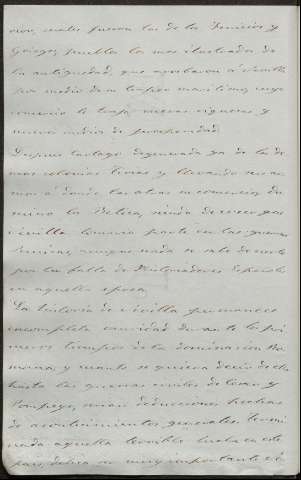 ores, cuales fueron las de los Fenicios y
Griegos, pueblos los mas ilustrados de
la antigüedad, que aportaron á Sevilla
por medio de su trafico maritimo, cuyo
comercio le trajo nuevas riquezas y
nuevos medios de prosperidad.
Despues Cartago degenerada ya de la de
mas colonias Tirias y llevando sus ar
mas á donde las otras su comercio, do
minó la Betica, siendo de creer que
Sevilla tomaria parte en las guerras
aunque nada se sabe de cierto
por la falta de Historiadores Españoles
en aquella epoca.
La historia de Sevilla permanece
incompleta durante los pri
meros tiempos de la dominacion Ro
mana, y cuanto se quiera decir de ella
hasta las guerras civiles de Cesar y
Pompeyo, serian deducciones hechas
de acontecimientos generales. Termi
nada aquella terrible lucha en este
pais, debia ser muy importante